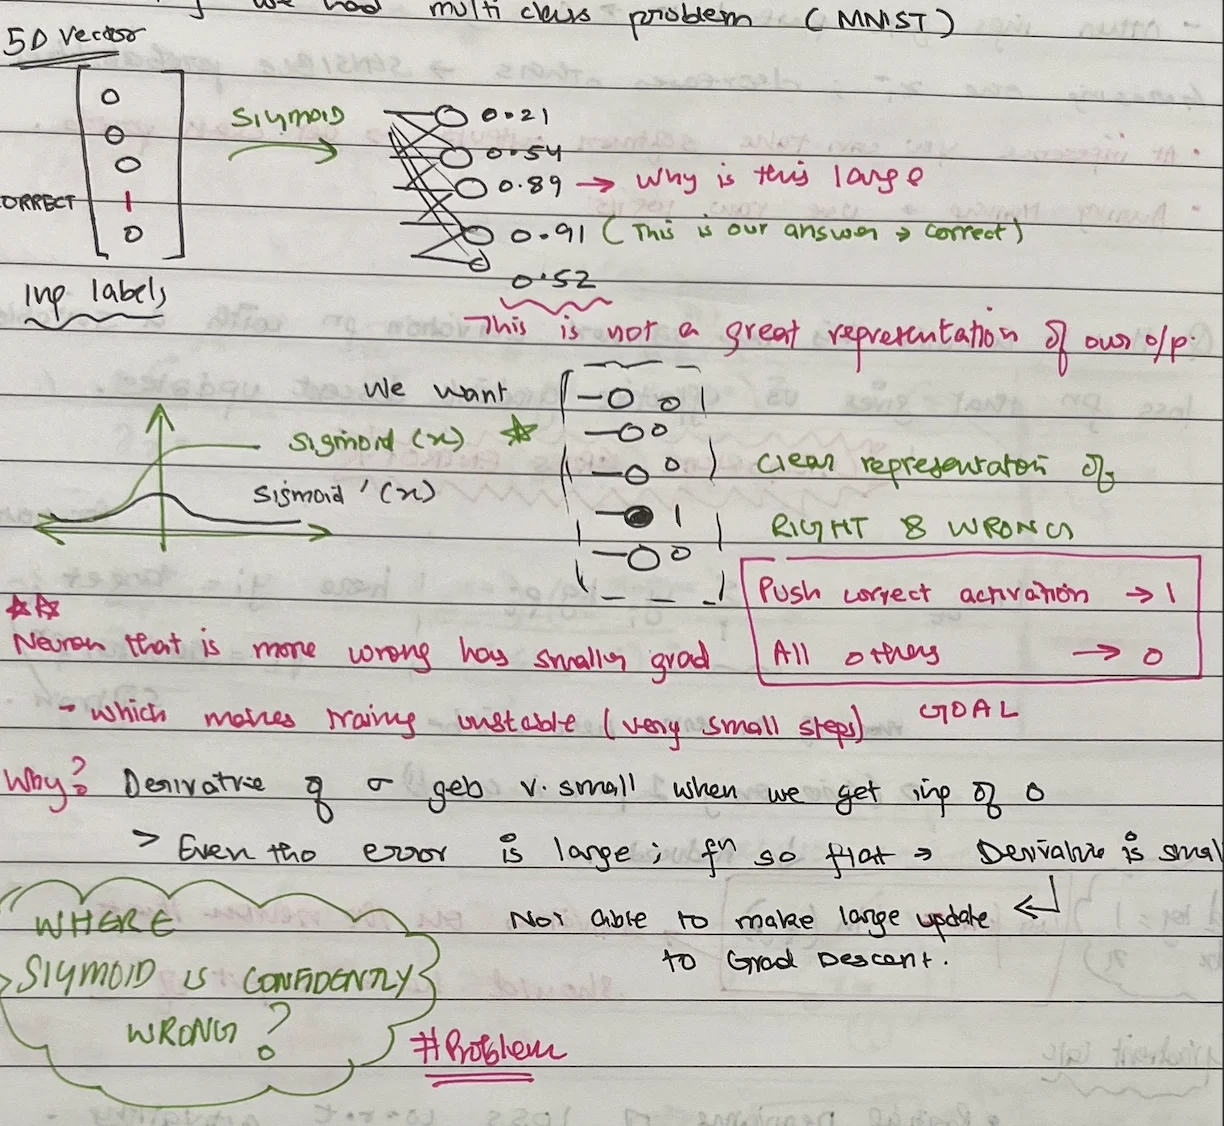 we had multi class problem (MNIST)
5D vector
0
0
0
1
0
ORRECT
SIGMOID
0.21
0.54
0.89 → Why is this large
0.91 (This is our answer → correct)
0.52
Inp labels
This is not a great representation of our o/p.
We want
0
0
0
1
0
sigmoid (x)
sigmoid '(x)
clear representation of
RIGHT & WRONG
Push correct activation → 1
All others → 0
GOAL
Neuron that is more wrong has smaller grad
- which makes traing unstable (very small steps)
Why? Derivative of σ gets v. small when we get inp of 0
> Even tho error is large; fn so flat → Derivative is smal
Not able to make large update
to Grad Descent.
WHERE
SIGMOID IS CONFIDENTLY
WRONG?
#Problem